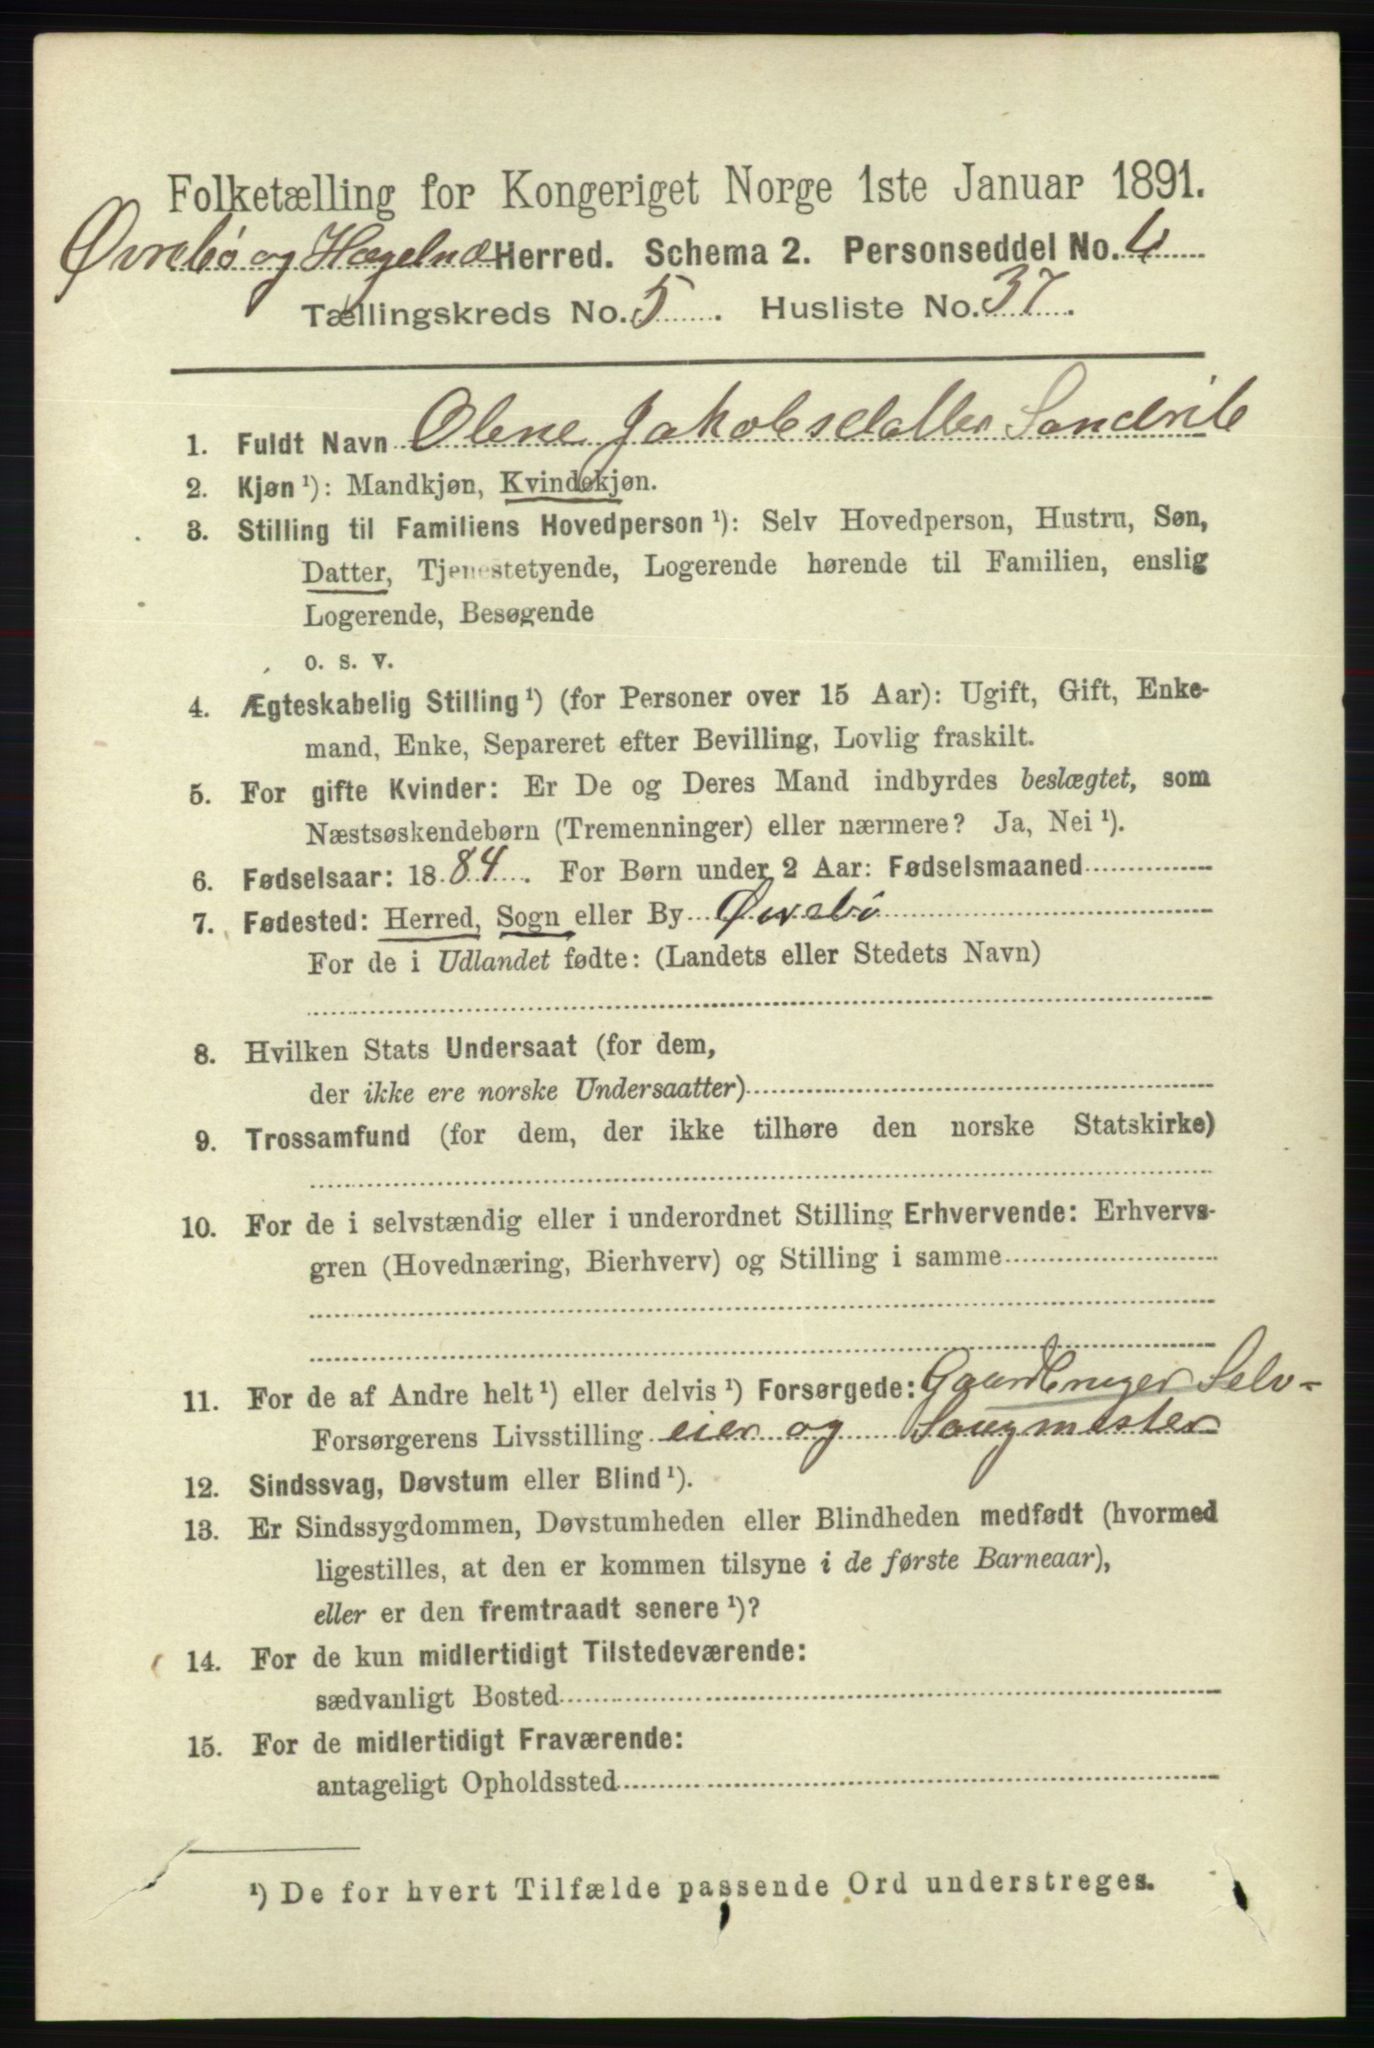 Folketælling for Kongeriget Norge 1ste Januar 1891.
Øvrebø og Hægeland Herred. Schema 2. Personseddel No. 4
Tællingskreds No. 5. Husliste No. 37.
1. Fuldt Navn Olene Jakobsdatter
2. Kjøn ¹): Mandkjøn, Kvindekjøn.
3. Stilling til Familiens Hovedperson ¹): Selv Hovedperson, Hustru, Søn,
Datter, Tjenestetyende, Logerende hørende til Familien, enslig
Logerende, Besøgende
o. s. v.
4. Ægteskabelig Stilling ¹) (for Personer over 15 Aar): Ugift, Gift, Enke-
mand, Enke, Separeret efter Bevilling, Lovlig fraskilt.
5. For gifte Kvinder: Er De og Deres Mand indbyrdes beslægtet, som
Næstsøskendebørn (Tremenninger) eller nærmere? Ja, Nei ¹).
6. Fødselsaar: 1884. For Børn under 2 Aar: Fødselsmaaned
7. Fødested: Herred, Sogn eller By Øvrebö
For de i Udlandet fødte: (Landets eller Stedets Navn)
8. Hvilken Stats Undersaat (for dem,
der ikke ere norske Undersaatter)
9. Trossamfund (for dem, der ikke tilhøre den norske Statskirke)
10. For de i selvstændig eller i underordnet Stilling Erhvervende: Erhvervs-
gren (Hovednæring, Bierhverv) og Stilling i samme
11. For de af Andre helt ¹) eller delvis ¹) Forsørgede: Gaardbruger Selv-
Forsørgerens Livsstilling eier og Saugmester
12. Sindssvag, Døvstum eller Blind ¹).
13. Er Sindssygdommen, Døvstumheden eller Blindheden medfødt (hvormed
ligestilles, at den er kommen tilsyne i de første Barneaar),
eller er den fremtraadt senere ¹)?
14. For de kun midlertidigt Tilstedeværende:
sædvanligt Bosted
15. For de midlertidigt Fraværende:
antageligt Opholdssted
¹) De for hvert Tilfælde passende Ord understreges.